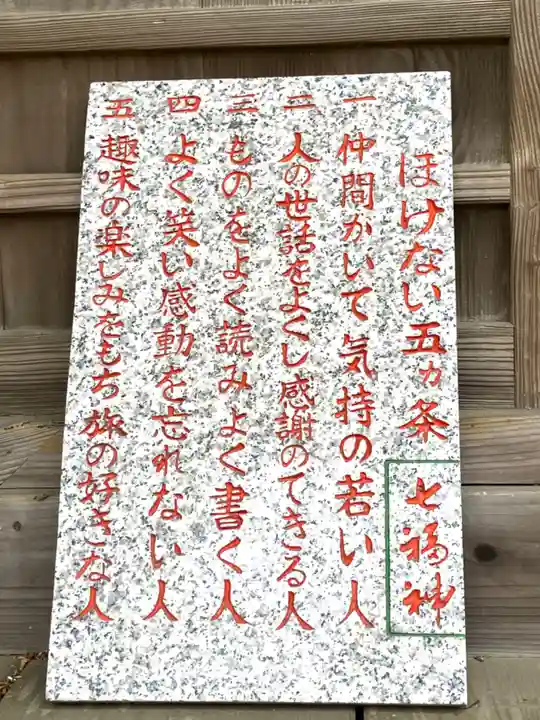 ほけない五カ条 七福神
一 仲間がいて気持の若い人
二 人の世話をよくし感謝のできる人
三 ものをよく読みよく書く人
四 よく笑い感動を忘れない人
五 趣味の楽しみをもち旅の好きな人